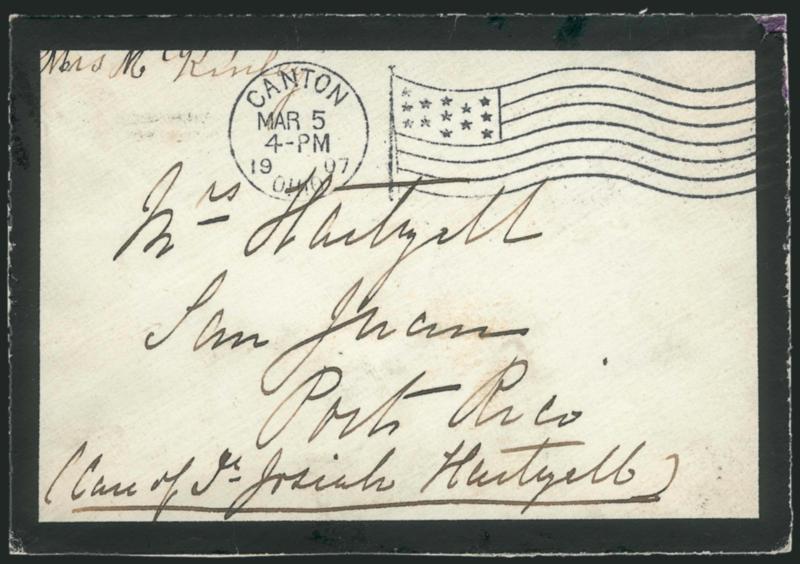 Mrs McKinley
CANTON
MAR 5
4-PM
19 07
OHIO
Mrs Hartzell
San Juan
Porto Rico
(Care of Dr Josiah Hartzell)